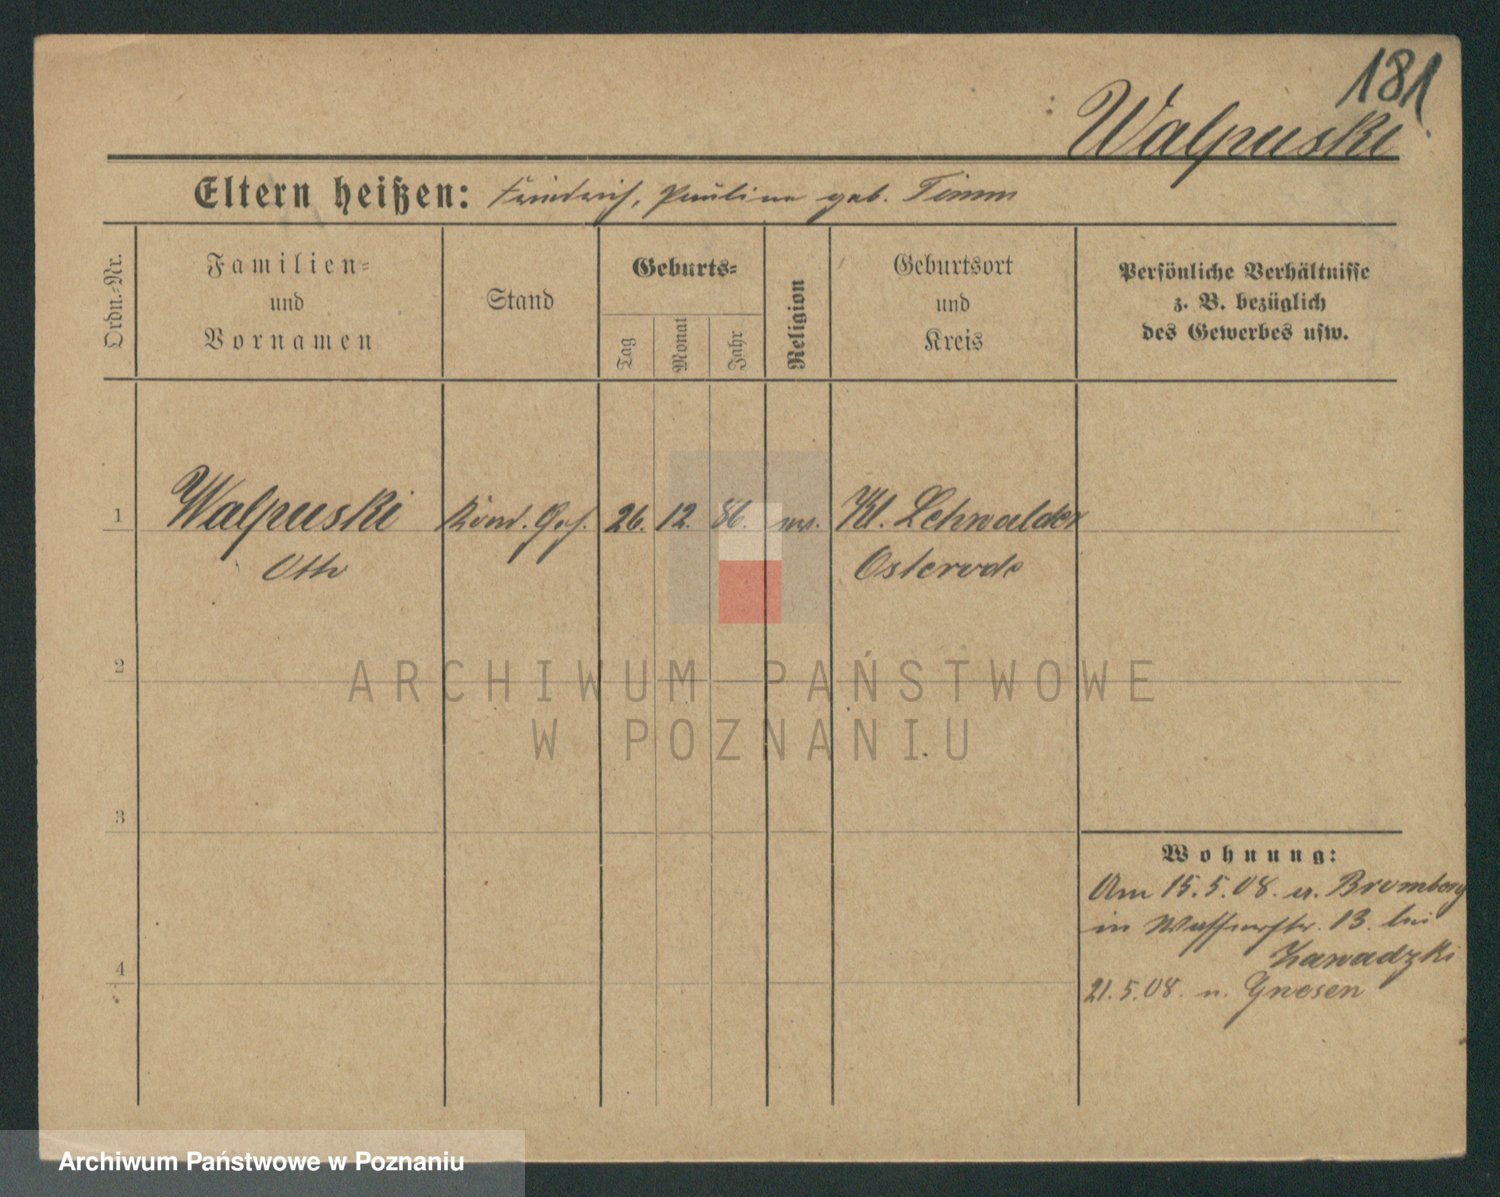 181
Walpuski
Eltern heißen: Friedrich, Pauline geb. Timm
Ordn.-Nr.
Familien-
und
Vornamen
Stand
Geburts-
Tag
Monat
Jahr
Religion
Geburtsort
und
Kreis
Persönliche Verhältnisse
z. B. bezüglich
des Gewerbes usw.
1 Walpuski Kond. Geh. 26. 12. 86. ev. Kl. Lehwalde
Otto Osterode
2
3
4
Wohnung:
Am 15.5.08. v. Bromberg
in Wasserstr. 13. bei
Zawadzki
21.5.08. n. Gnesen
ARCHIWUM PAŃSTWOWE
W POZNANIU
Archiwum Państwowe w Poznaniu